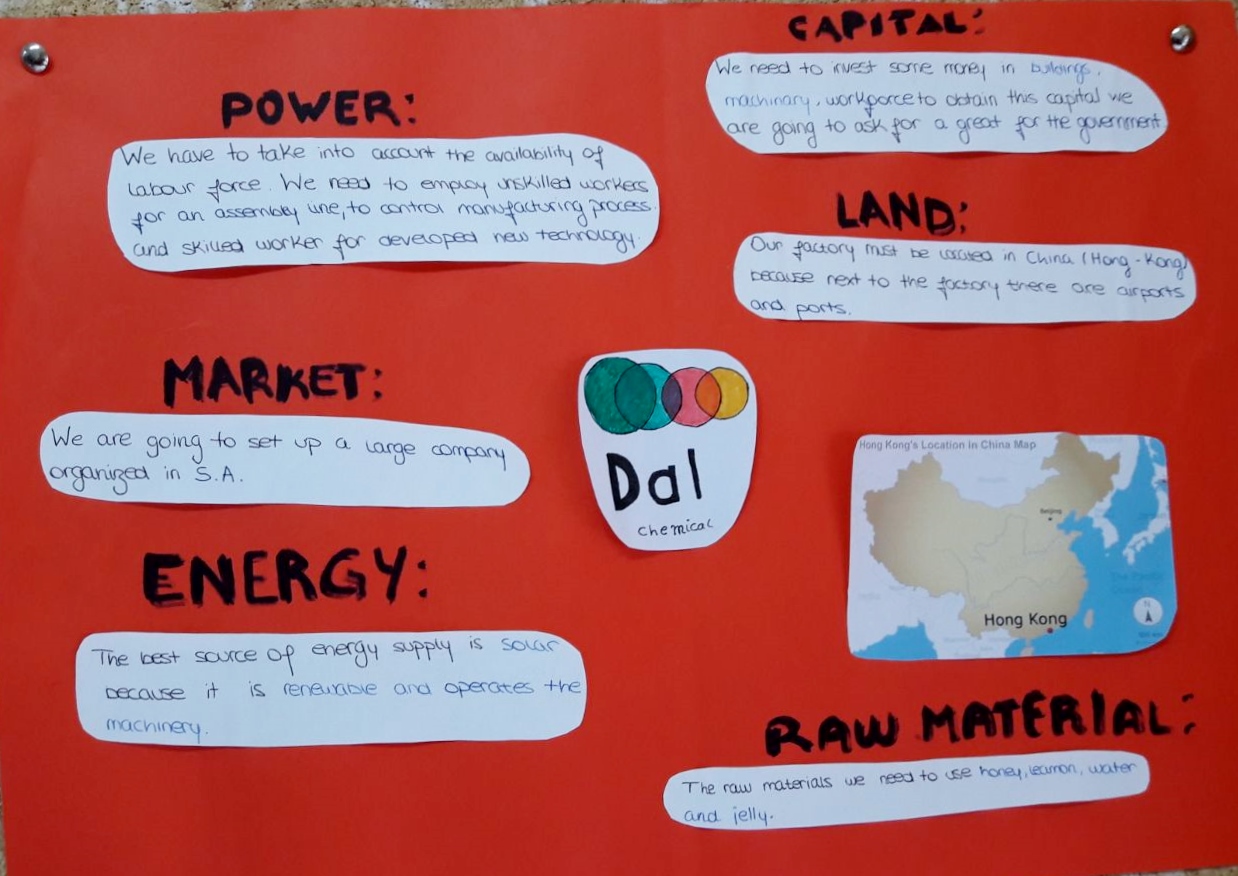 POWER:
We have to take into account the availability of
labour force. We need to employ unskilled workers
for an assembly line, to control manufacturing process.
and skilled worker for developed new technology.
MARKET:
We are going to set up a large company
organized in S.A.
ENERGY:
The best source of energy supply is solar
because it is renewable and operates the
machinery.
Dal
chemical
CAPITAL:
We need to invest some money in buildings,
machinary, workforce to obtain this capital we
are going to ask for a great for the government
LAND:
Our factory must be located in China (Hong-Kong)
because next to the factory there are airports
and ports.
Hong Kong's Location in China Map
Beijing
The Pacific
Ocean
Hong Kong
N
RAW MATERIAL:
The raw materials we need to use honey, leamon, water
and jelly.